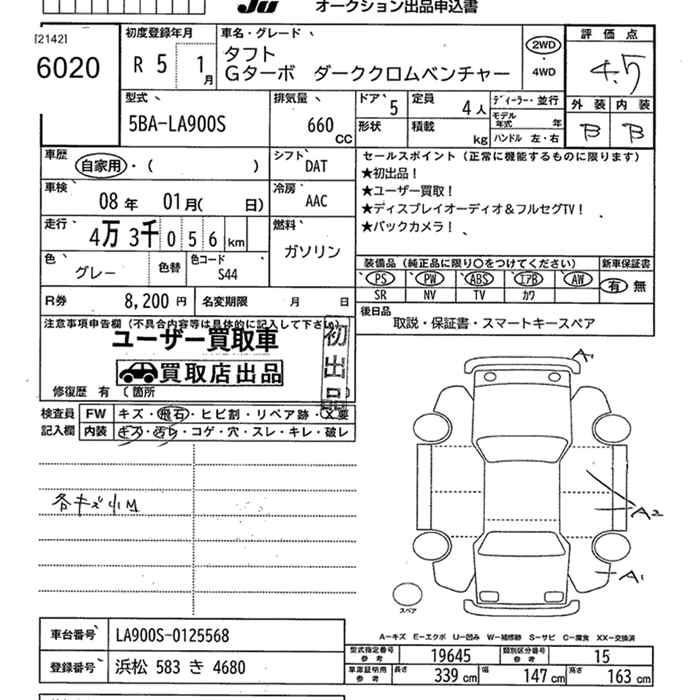 Ju オークション出品申込書
[2142]
6020
初度登録年月
R 5 1月
車名・グレード
タフト
Gターボ ダーククロムベンチャー
2WD
・
4WD
評価点
4.5
外装 内装
B B
型式
5BA-LA900S
排気量
660 CC
ドア 5
定員 4人
ディーラー・並行
モデル年式 年
形状
積載 kg
ハンドル 左・右
車歴
自家用・( )
シフト
DAT
車検
08年 01月( 日)
冷房
AAC
走行
4万3千056km
燃料
ガソリン
色
グレー
色替
色コード
S44
R券 8,200円
名変期限 月 日
セールスポイント(正常に機能するものに限ります)
★初出品!
★ユーザー買取!
★ディスプレイオーディオ&フルセグTV!
★バックカメラ!
装備品(純正品に限り○をつけてください)
新車保証書
PS PW ABS エアB AW
有 無
SR NV TV カワ
後日品
取説・保証書・スマートキースペア
注意事項申告欄(不具合内容等は具体的に記入して下さい)
ユーザー買取車
買取店出品
初出品
修復歴 有 (箇所 )
検査員 FW キズ・飛石・ヒビ割・リペア跡・X要
記入欄 内装 キズ・汚レ・コゲ・穴・スレ・キレ・破レ
各キズ小M
A1
A2
A1
スペア
A－キズ E－エクボ U－凹み W－補修跡 S－サビ C－腐食 XX－交換済
車台番号 LA900S-0125568
登録番号 浜松 583 き 4680
型式指定番号 参考 19645
類別区分番号 参考 15
車庫証明用 参考 長さ 339cm 幅 147cm 高さ 163cm